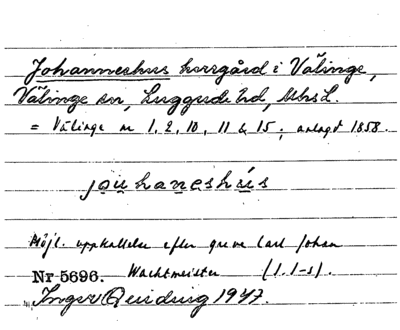 Johanneshus herrgård i Välinge,
Välinge sn, Luggude hd, Mhs L.
= Välinge nr 1, 2, 10, 11 & 15; anlagt 1858.
jo̤ṳhaneshús
Möjl. uppkallelse efter greve Carl Johan
Nr 5696. Wachtmeister (1.1-s).
Inger Quiding 1947.